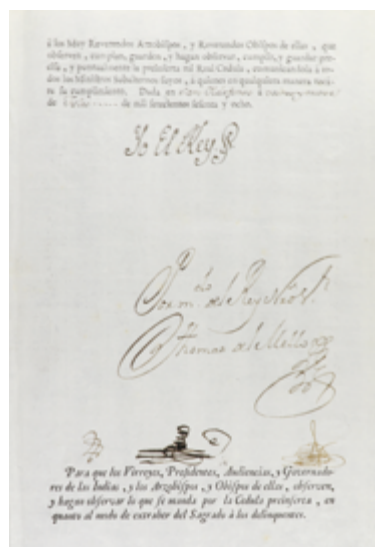 á los Muy Reverendos Arzobispos, y Reverendos Obispos de ellas, que
observen, cumplan, guarden, y hagan observar, cumplir, y guardar
y puntualmente la preinserta mi Real Cedula, comunicandola á to-
dos los Ministros Subalternos suyos, á quienes en qualquiera manera toca-
re su cumplimiento. Dada en
de mil setecientos sesenta y ocho.
Yo El Rey
Por mdo. del Rey Nro. Sr.
Thomas del Mello
Para que los Virreyes, Presidentes, Audiencias, y Governado-
res de las Indias, y los Arzobispos, y Obispos de ellas, observen,
y hagan observar lo que se manda por la Cedula preinserta, en
quanto al modo de extraher del Sagrado á los delinquentes.